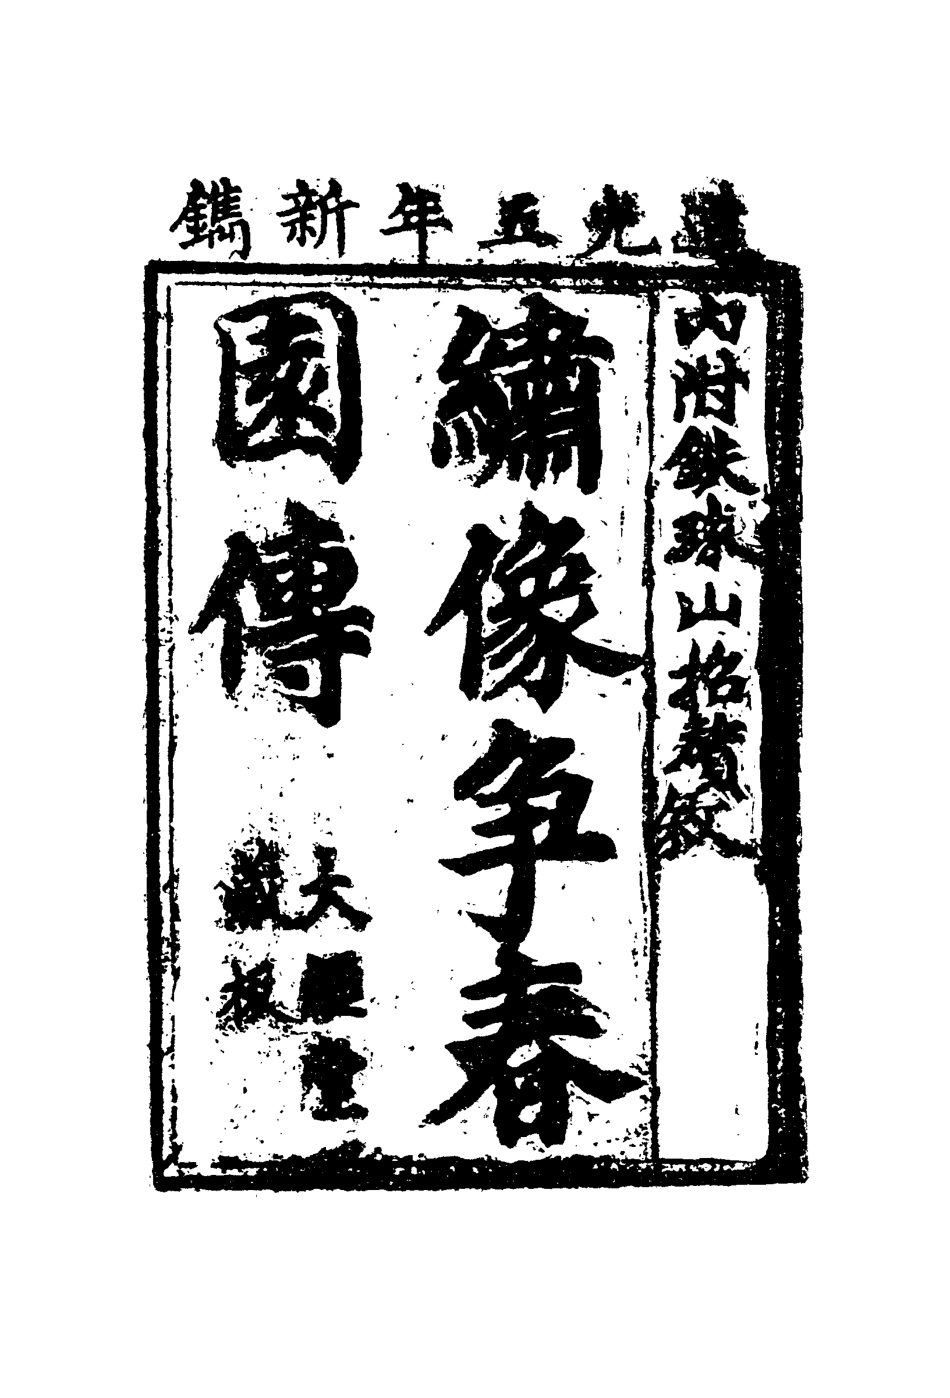 道光五年新鐫
內附鉄球山招贅敘
繡像爭春
園傳
大經堂
藏板